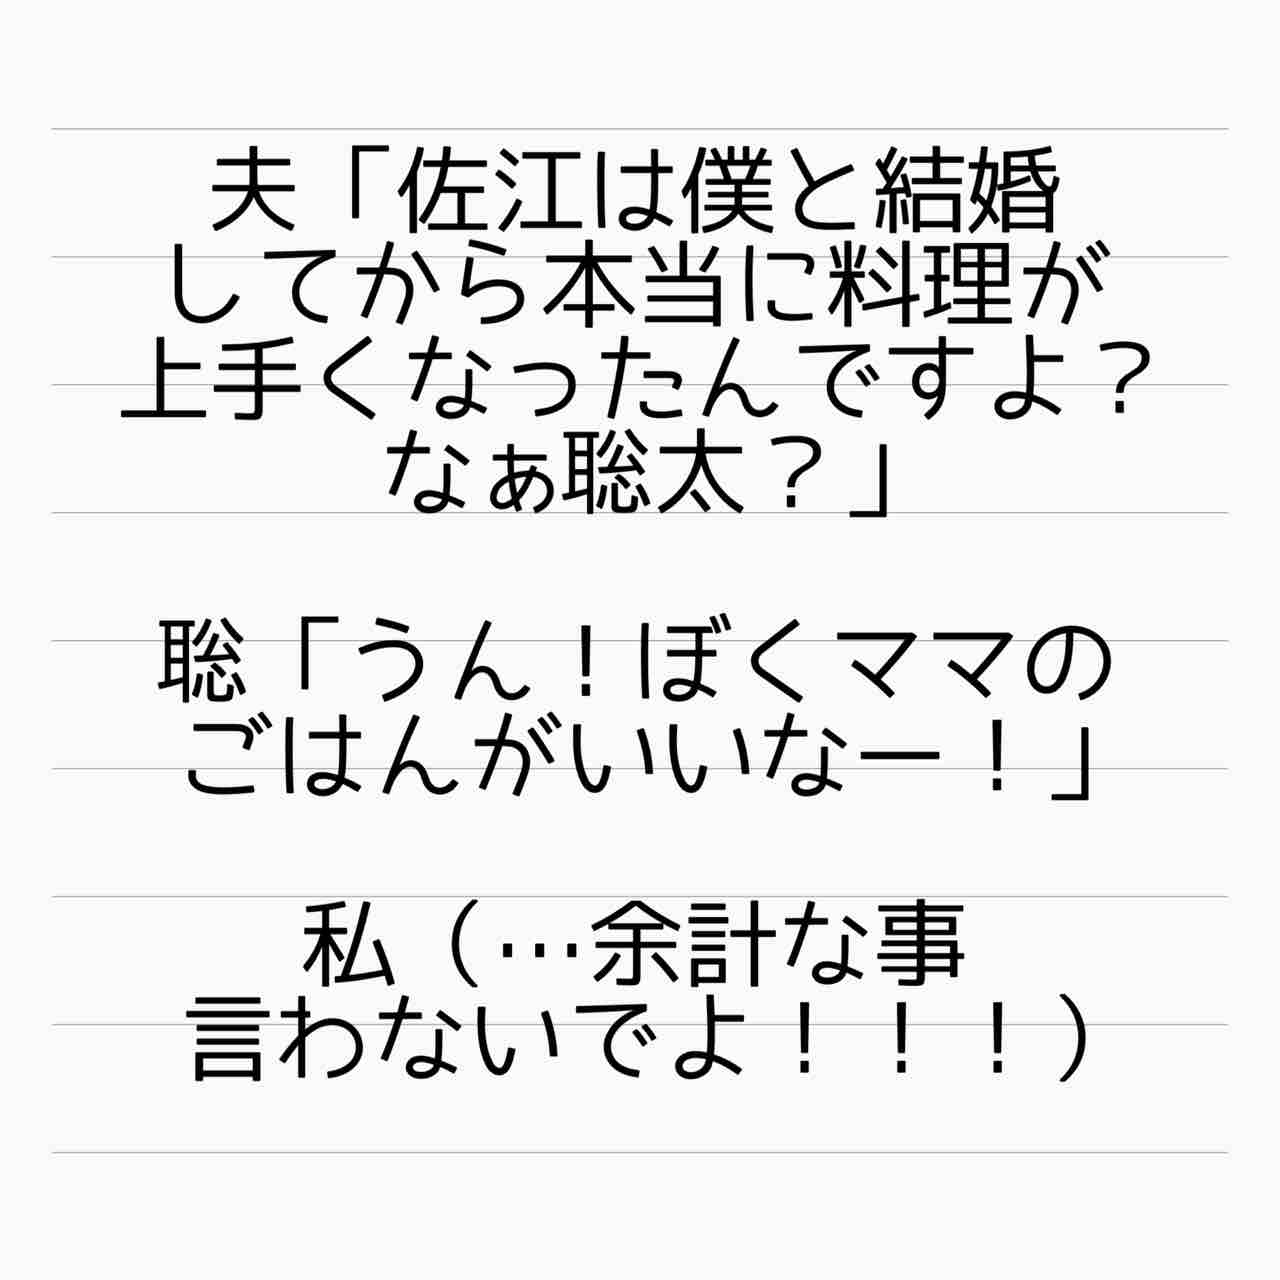 夫「佐江は僕と結婚
してから本当に料理が
上手くなったんですよ？
なぁ聡太？」
聡「うん！ぼくママの
ごはんがいいなー！」
私（…余計な事
言わないでよ！！！）